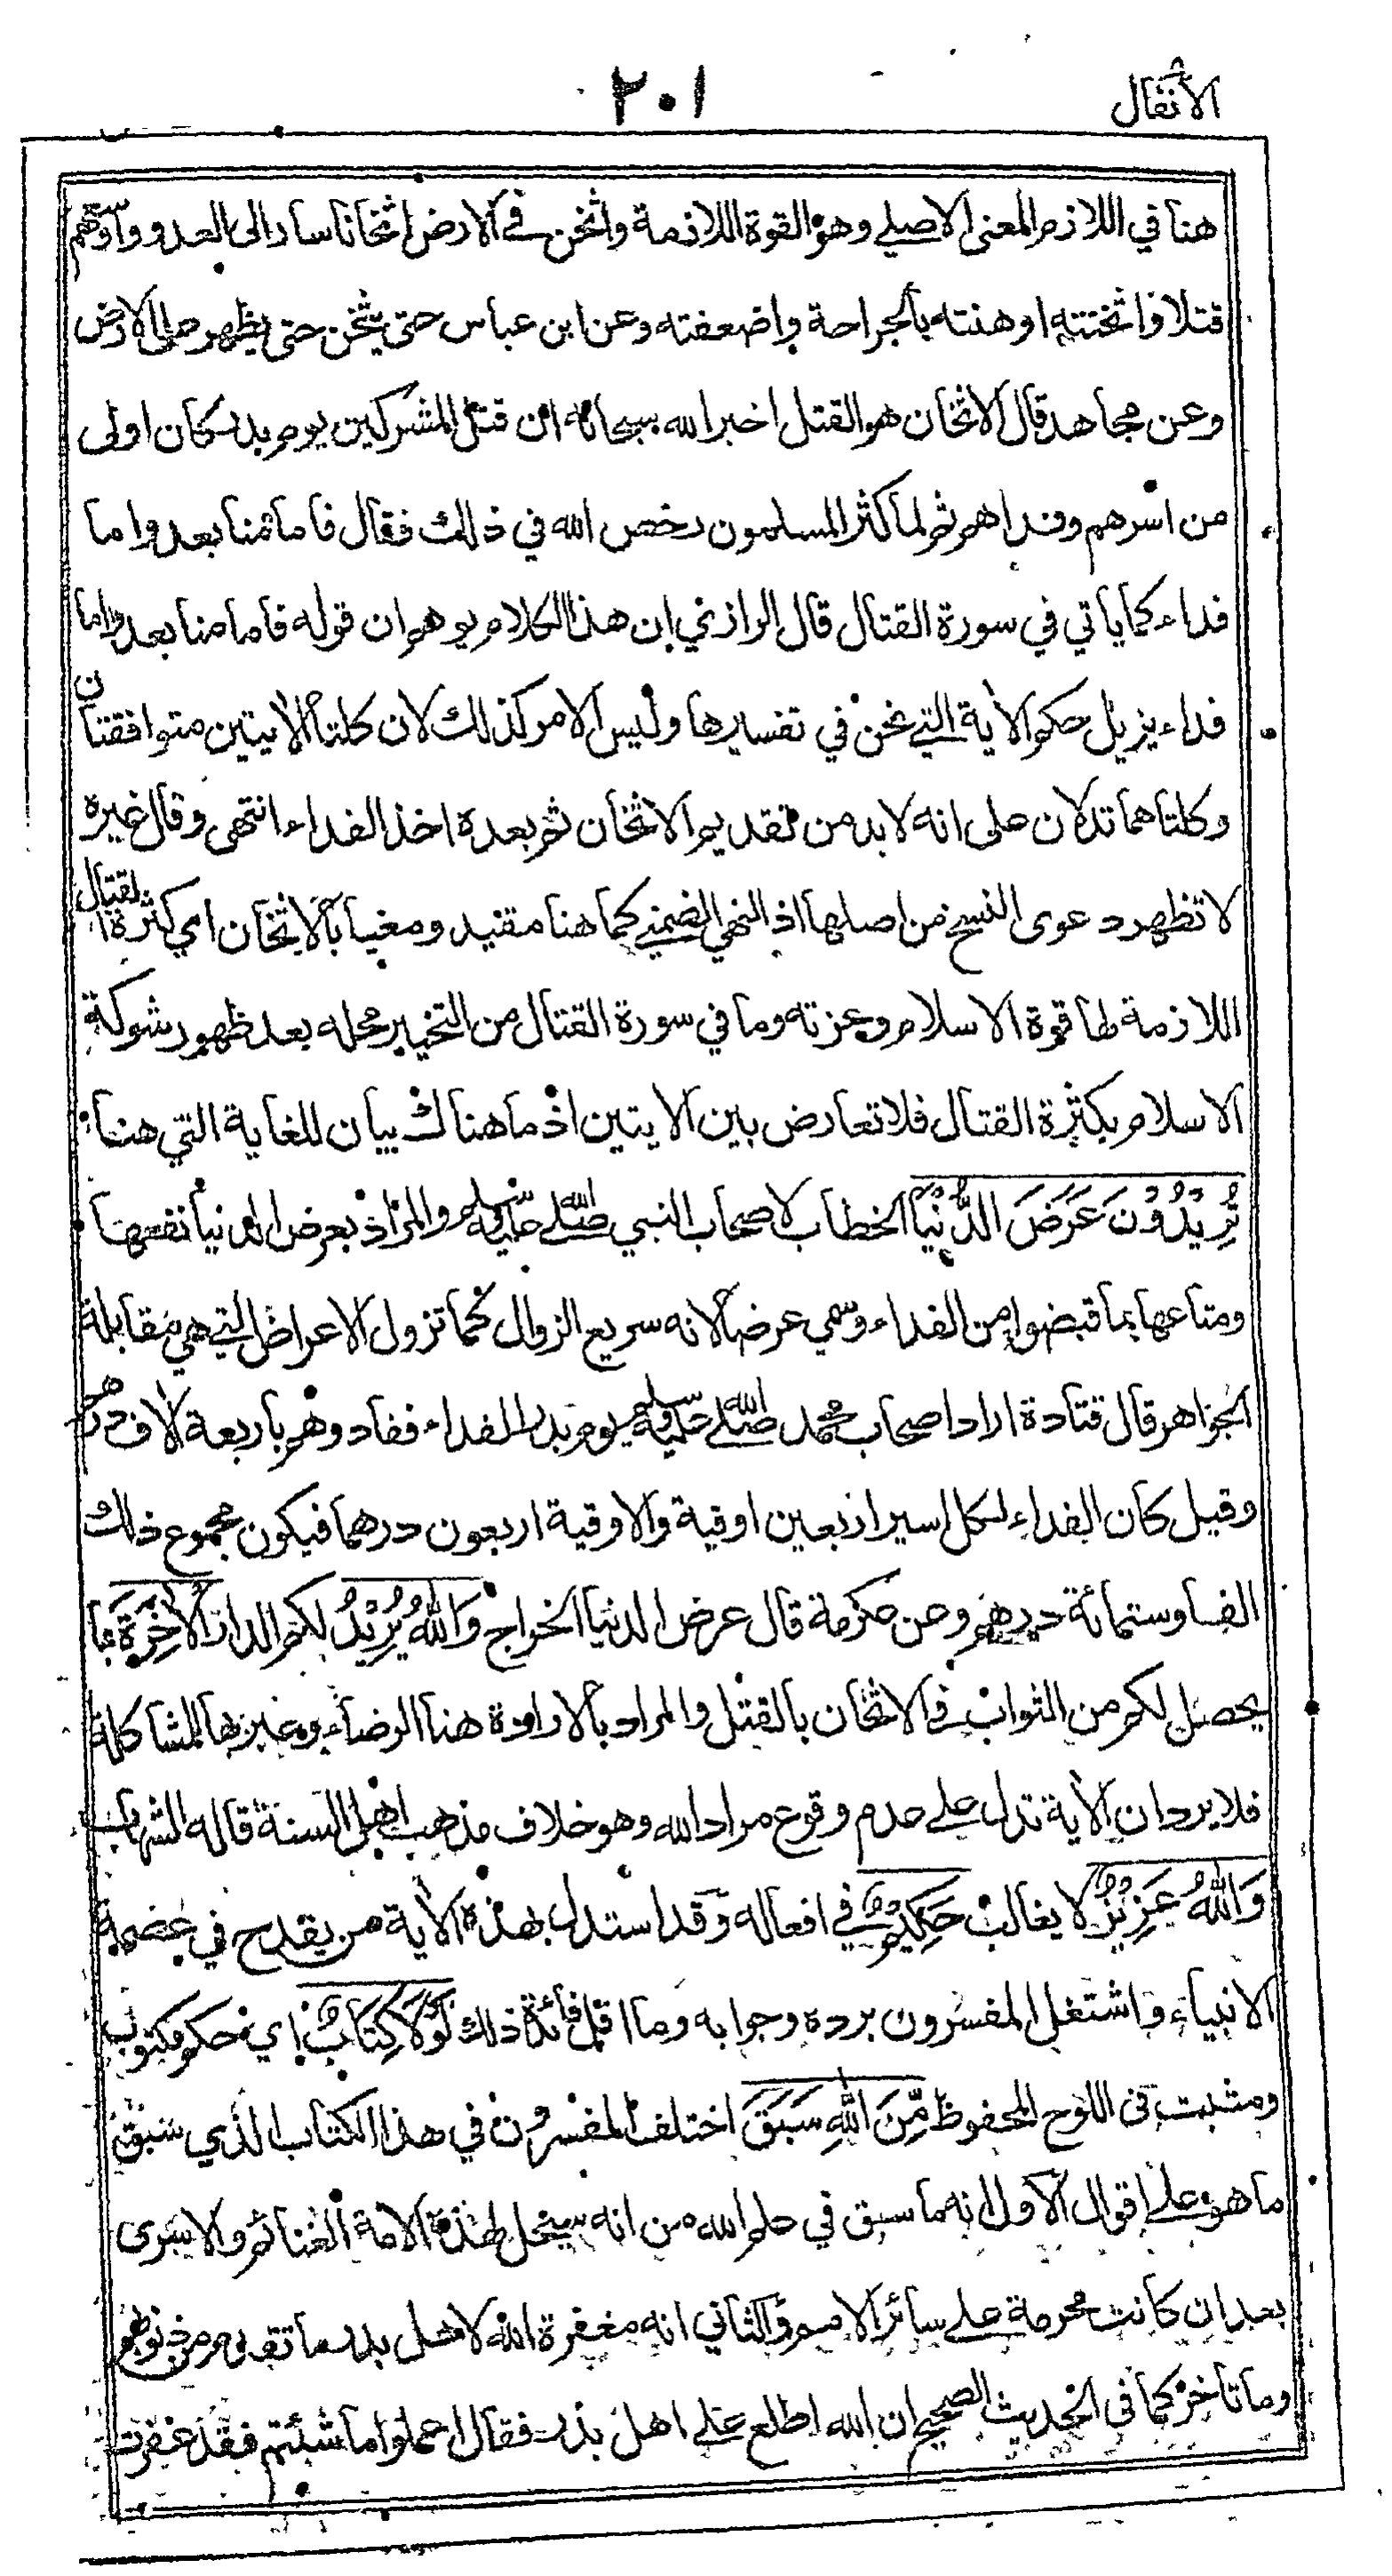 الأنفال
٢٠١
هنا في اللازم المعنى الاصلي وهو القوة اللازمة واثخن في الارض اثخانا سار الى العدو واوسعهم
قتلا واثخنته اوهنته بالجراحة واضعفته وعن ابن عباس حتى يثخن حتى يظهر على الارض
وعن مجاهد قال الاثخان هو القتل اخبر الله سبحانه ان قتل المشركين يوم بدر كان اولى
من اسرهم وفداهم ثم لما كثر المسلمون رخص الله في ذلك فقال فاما منا بعد واما
فداء كما ياتي في سورة القتال قال الرازي ان هذا الكلام يوهم ان قوله فاما منا بعد واما
فداء يزيل حكم الاية التي نحن في تفسيرها وليس الامر كذلك لان كلتا الايتين متوافقتان
وكلتاهما تدلان على انه لا بد من تقديم الاثخان ثم بعده اخذ الفداء انتهى وقال غيره
لا تظهر دعوى النسخ من اصلها اذ النهي الضمني كما هنا مقيد ومغيا بالاثخان اي كثرة القتال
اللازمة لها قوة الاسلام وعزته وما في سورة القتال من التخيير محله بعد ظهور شوكة
الاسلام بكثرة القتال فلا تعارض بين الايتين اذ ما هناك بيان للغاية التي هنا
تُرِيْدُوْنَ عَرَضَ الدُّنْيَا الخطاب لاصحاب النبي صلى الله عليه وسلم والمراد بعرض الدنيا نفعها
ومتاعها بما قبضوا من الفداء وسمي عرضا لانه سريع الزوال كما تزول الاعراض التي هي مقابلة
الجواهر قال قتادة اراد اصحاب محمد صلى الله عليه وسلم يوم بدر الفداء ففادوهم باربعة الاف درهم
وقيل كان الفداء لكل اسير اربعين اوقية والاوقية اربعون درهما فيكون مجموع ذلك
الفا وستمائة درهم وعن عكرمة قال عرض الدنيا الخراج وَاللّٰهُ يُرِيْدُ لكم الدار الْاٰخِرَةَ بما
يحصل لكم من الثواب في الاثخان بالقتل والمراد بالارادة هنا الرضاء وعبر بها للمشاكلة
فلا يرد ان الاية تدل على عدم وقوع مراد الله وهو خلاف مذهب اهل السنة قاله الشهاب
وَاللّٰهُ عَزِيْزٌ لا يغالب حَكِيْمٌ في افعاله وقد استدل بهذه الاية من يقدح في عصمة
الانبياء واشتغل المفسرون برده وجوابه وما اقل فائدة ذلك لَوْلَا كِتَابٌ اي حكم مكتوب
ومثبت في اللوح المحفوظ مِّنَ اللّٰهِ سَبَقَ اختلف المفسرون في هذا الكتاب الذي سبق
ما هو على اقوال الاول انه ما سبق في علم الله من انه سيحل لهذه الامة الغنائم والاسرى
بعد ان كانت محرمة على سائر الامم والثاني انه مغفرة الله لاهل بدر ما تقدم من ذنوبهم
وما تاخر كما في الحديث الصحيح ان الله اطلع على اهل بدر فقال اعملوا ما شئتم فقد غفرت